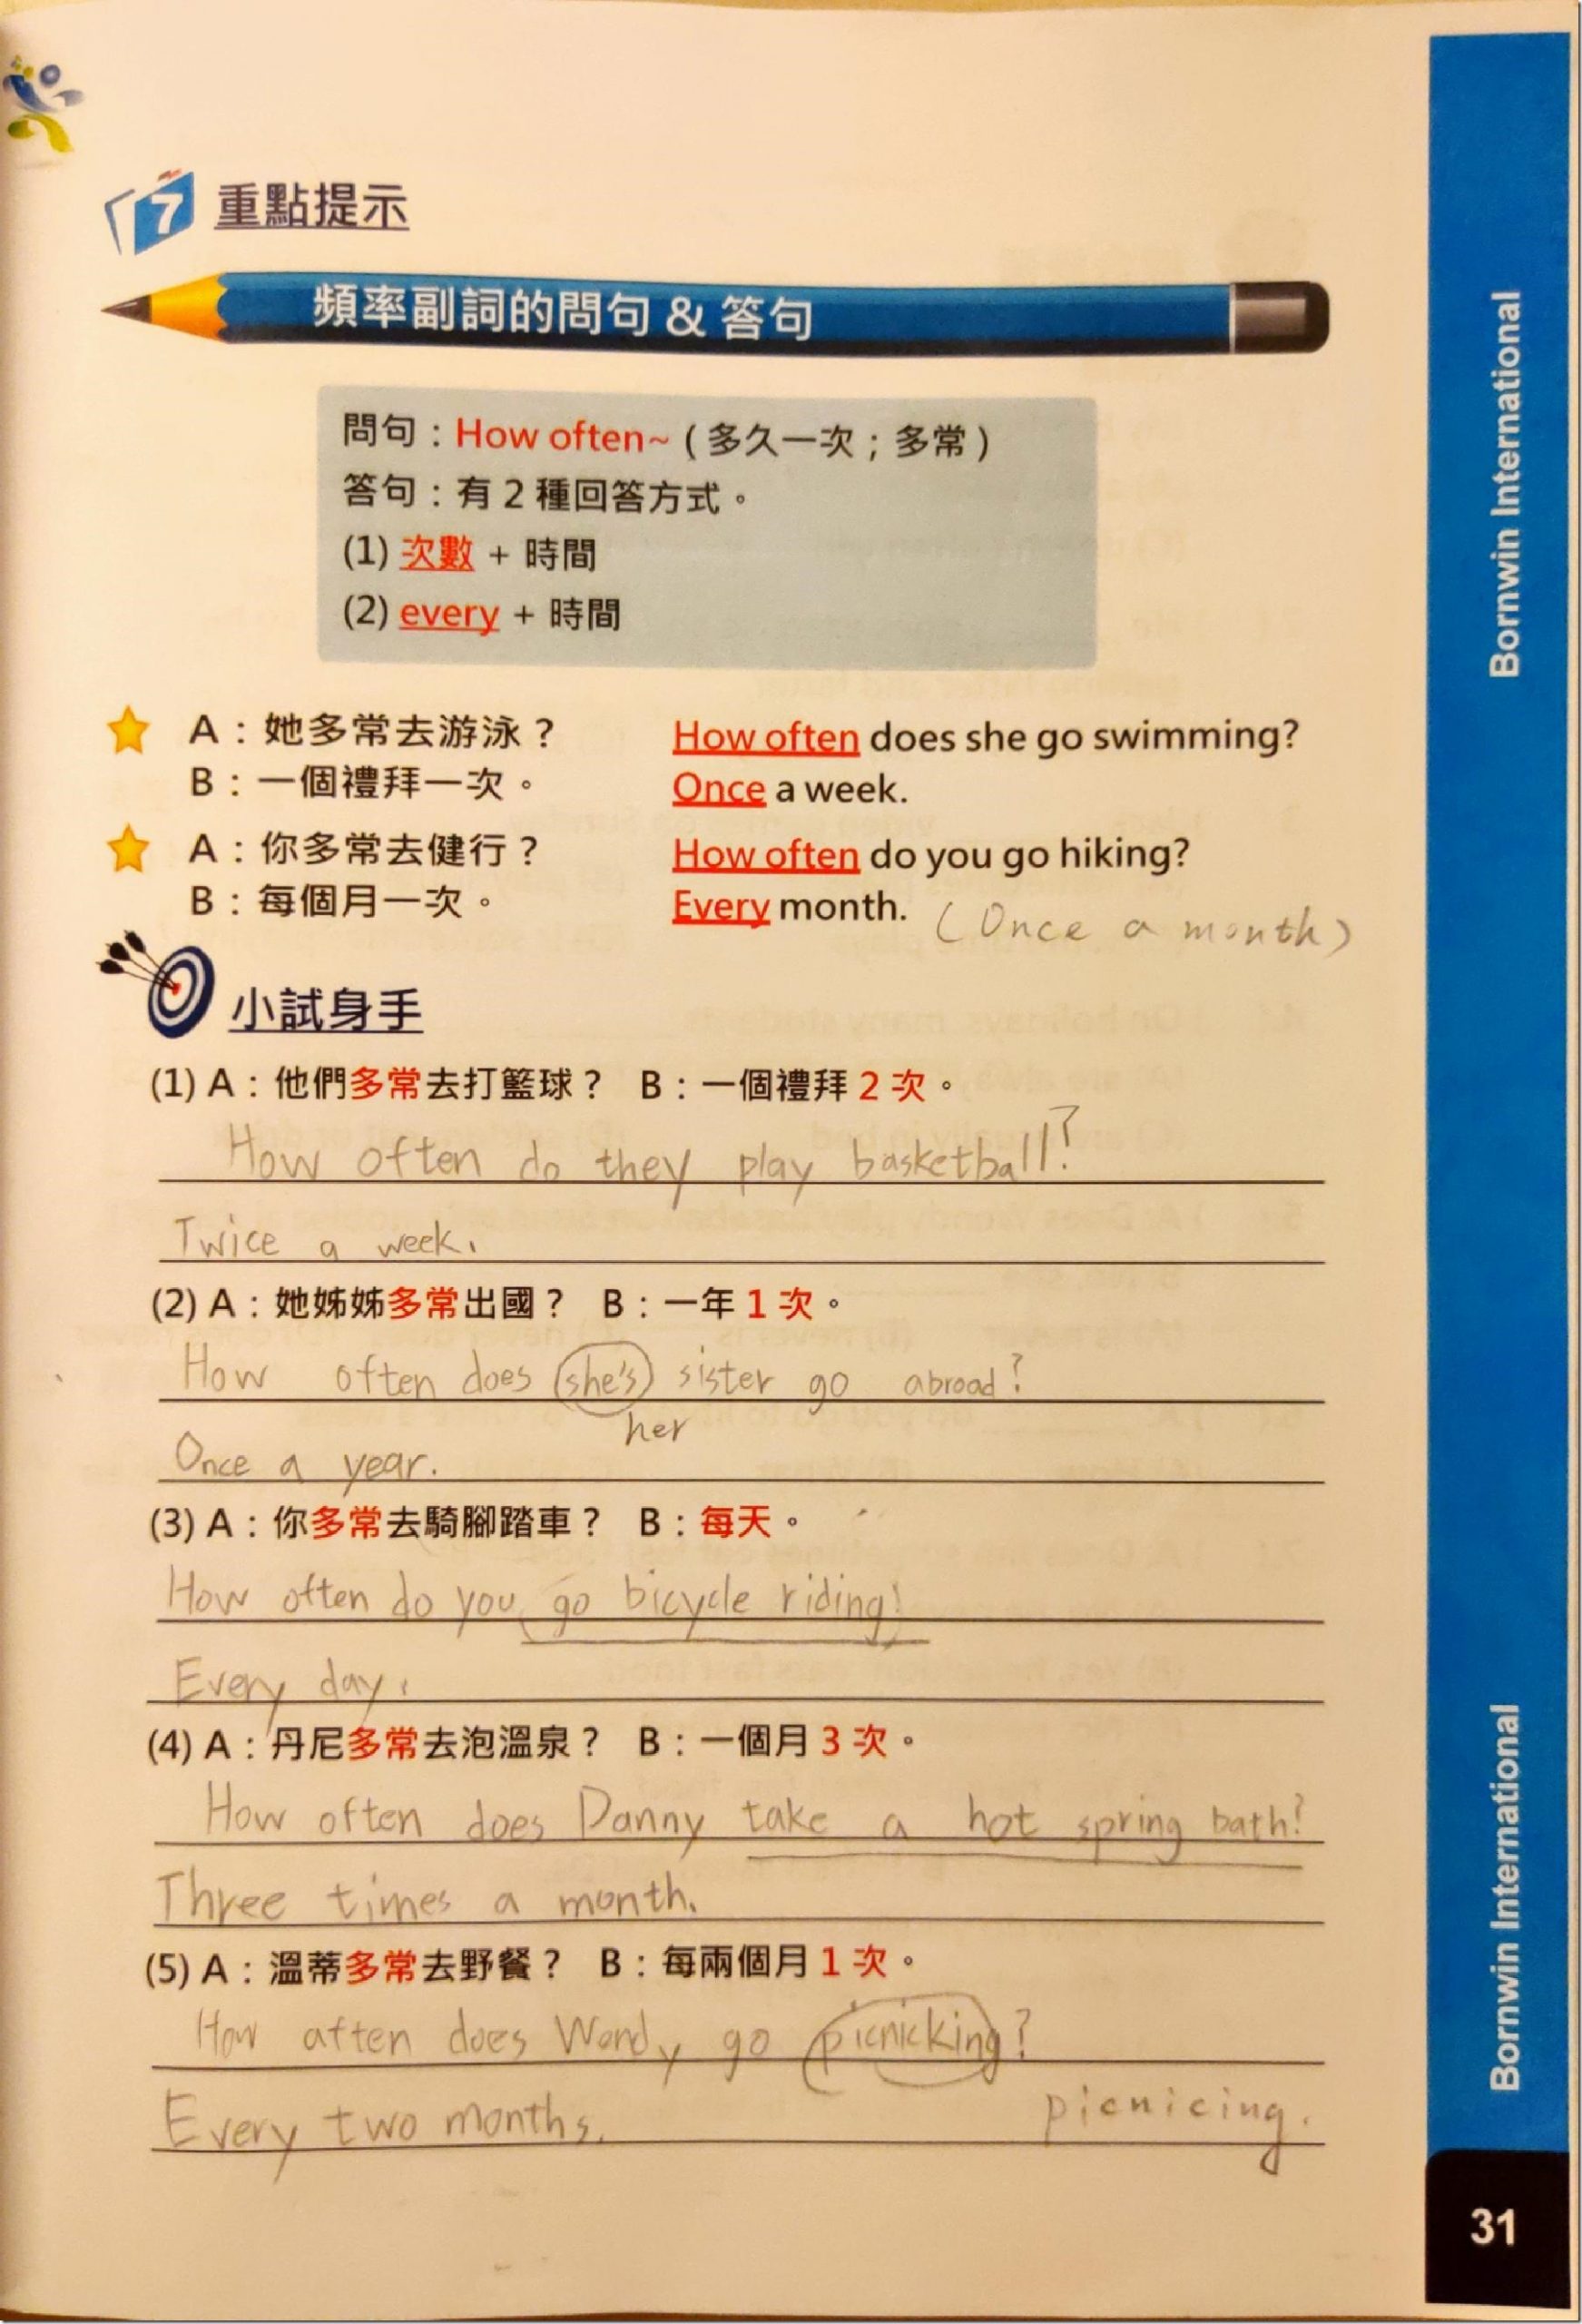 7 重點提示
頻率副詞的問句 & 答句
問句：How often~（多久一次；多常）
答句：有 2 種回答方式。
(1) 次數 + 時間
(2) every + 時間
A：她多常去游泳？ How often does she go swimming?
B：一個禮拜一次。 Once a week.
A：你多常去健行？ How often do you go hiking?
B：每個月一次。 Every month. (Once a month)
小試身手
(1) A：他們多常去打籃球？ B：一個禮拜 2 次。
How often do they play basketball?
Twice a week.
(2) A：她姊姊多常出國？ B：一年 1 次。
How often does she's sister go abroad?
her
Once a year.
(3) A：你多常去騎腳踏車？ B：每天。
How often do you go bicycle riding?
Every day.
(4) A：丹尼多常去泡溫泉？ B：一個月 3 次。
How often does Danny take a hot spring bath?
Three times a month.
(5) A：溫蒂多常去野餐？ B：每兩個月 1 次。
How aften does Wendy go picnicking?
Every two months. picnicing.
Bornwin International
Bornwin International
31